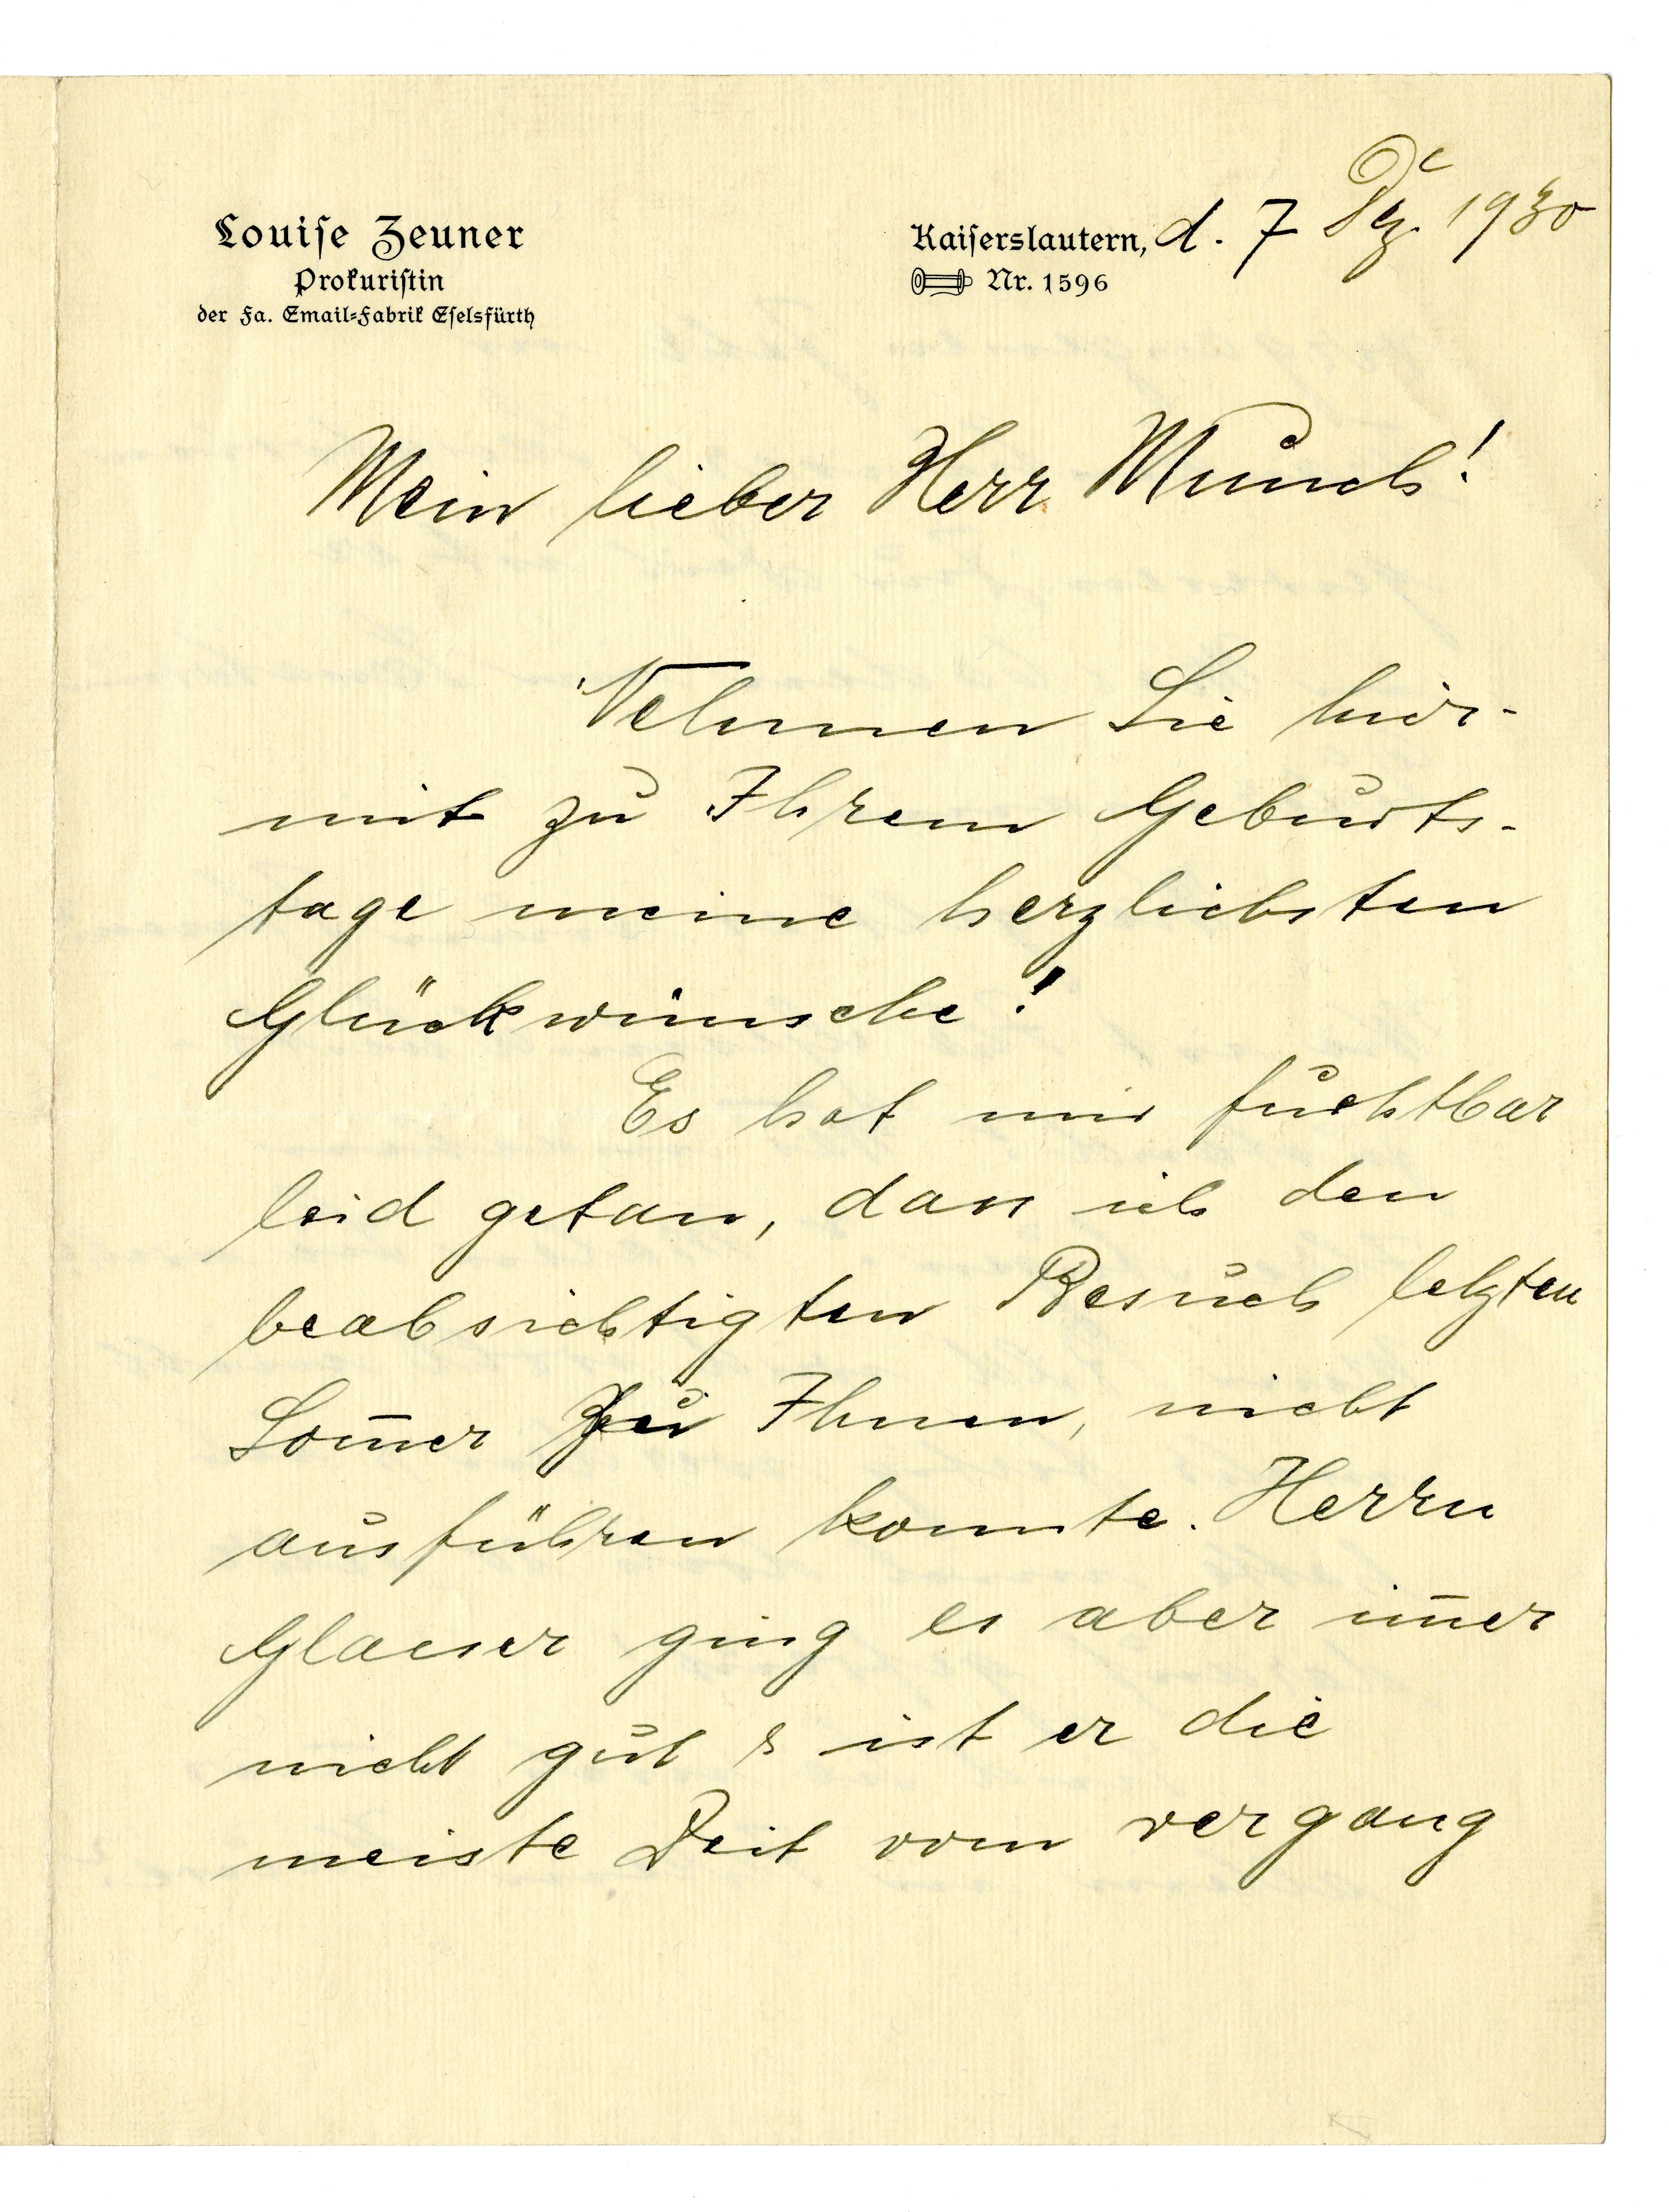 Louise Zeuner
Prokuristin
der Fa. Email-Fabrik Eselsfürth
Kaiserslautern, d. 7 Dez. 1930
Nr. 1596
Mein lieber Herr Munch!
Nehmen Sie hier-
mit zu Ihrem Geburts-
tage meine herzlichsten
Glückwünsche!
Es hat mir fuchtbar
leid getan, dass ich den
beabsichtigten Besuch letzten
Som̅er zu Ihnen, nicht
ausführen konnte. Herrn
Glaeser ging es aber im̅er
nicht gut & ist er die
meiste Zeit vom vergang